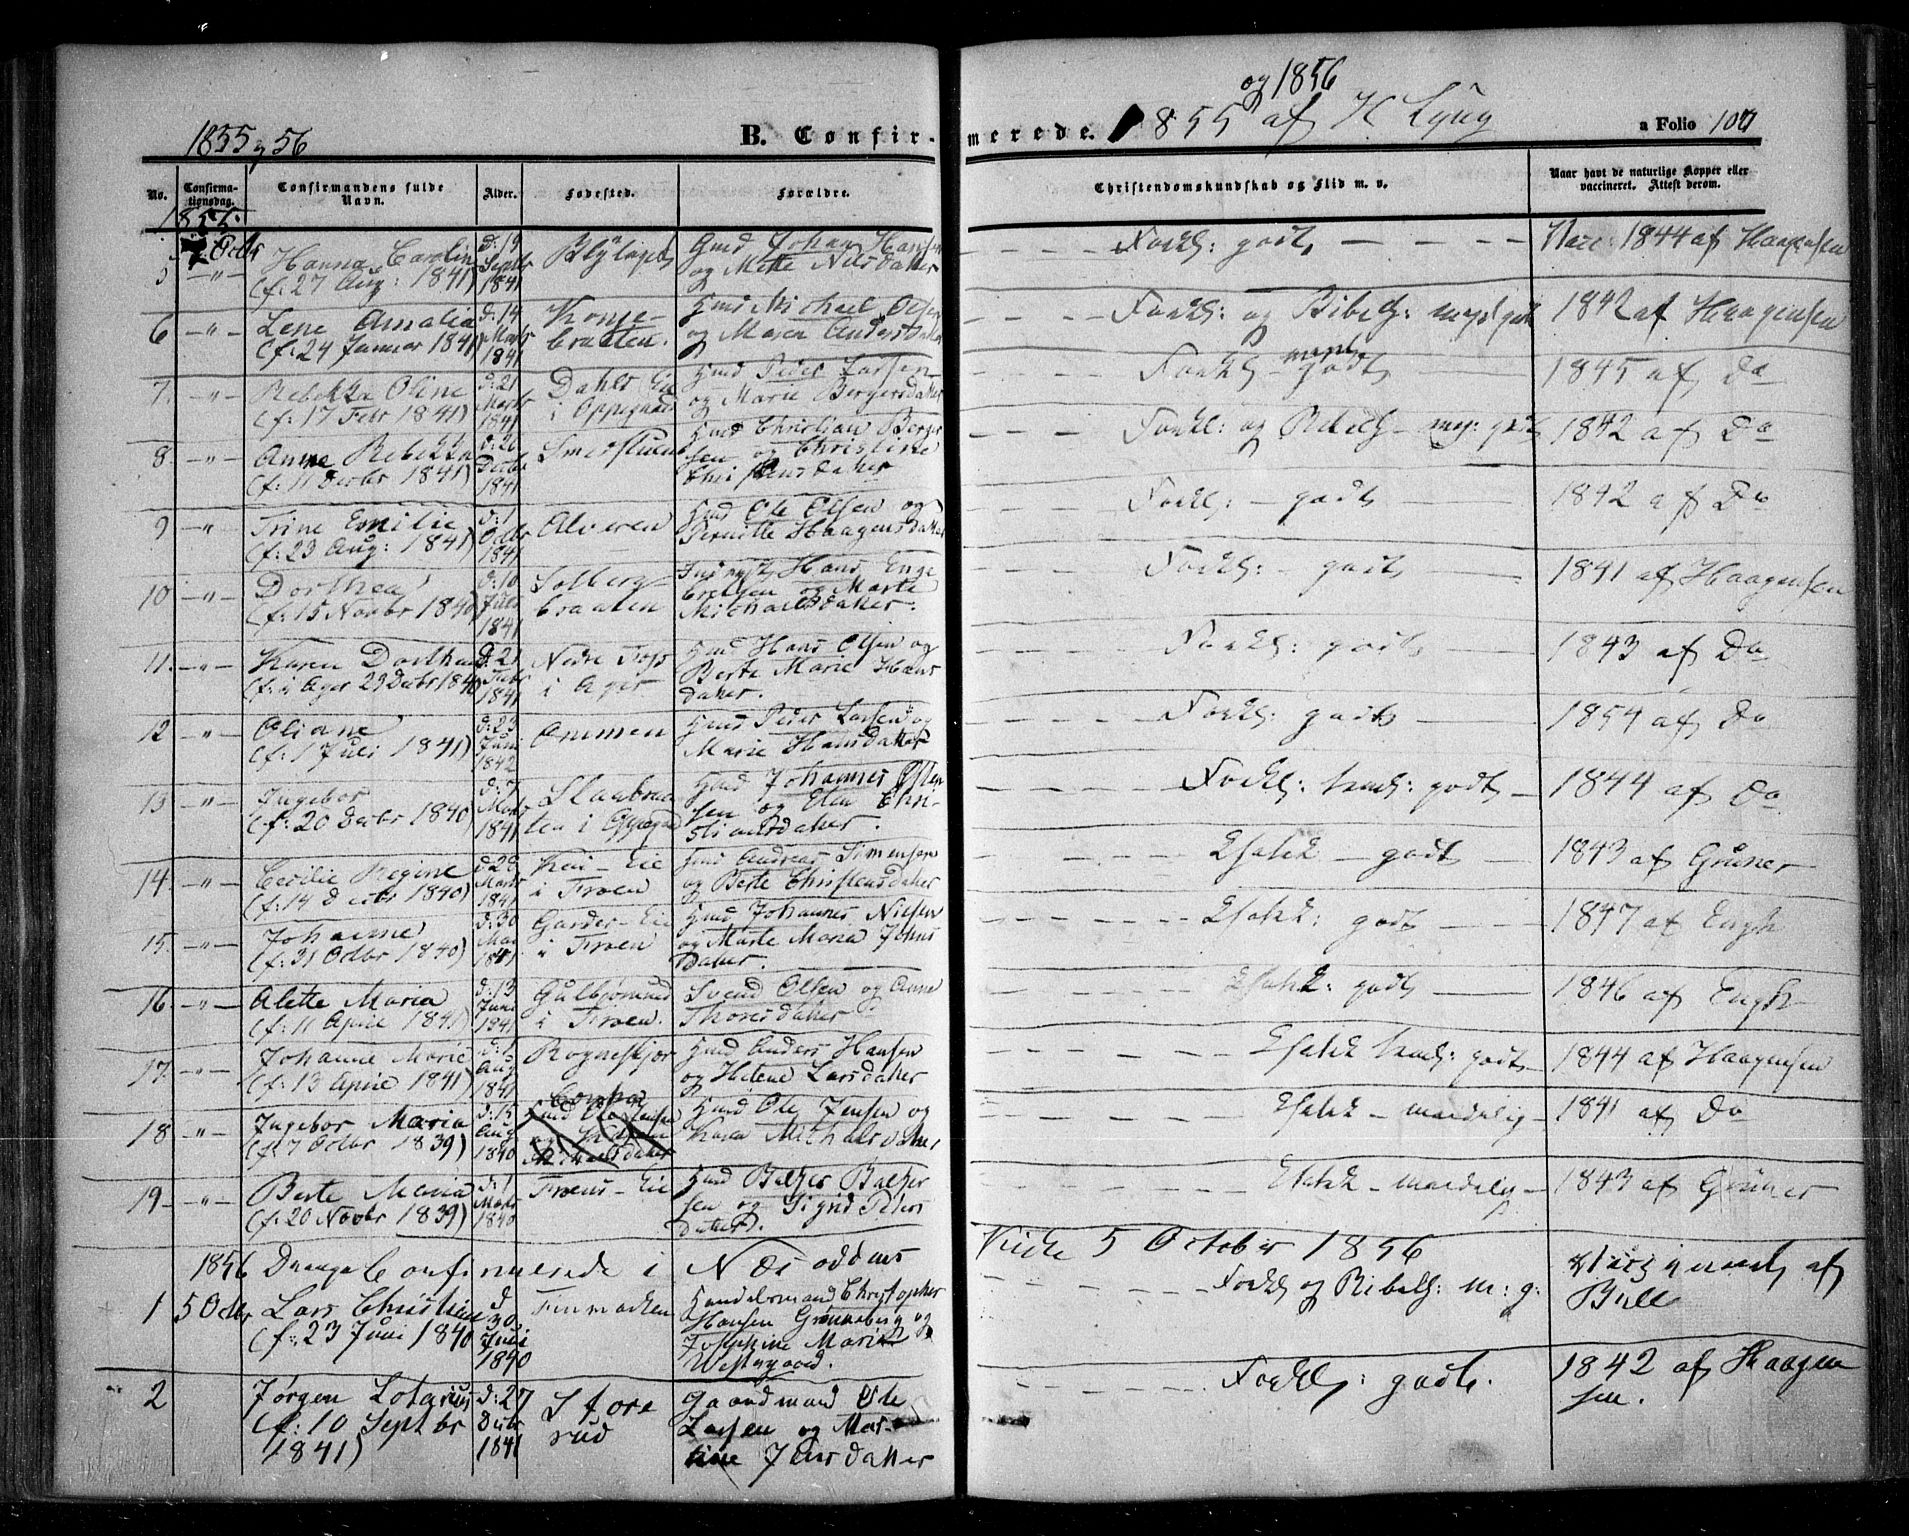 1855 & 56
B. Confir-
merede. 1855 af H Lyng
og 1856
a Folio 107
No.
Confirma-
tionsdag.
Confirmandens fulde
Navn.
Alder.
Fødested.
Forældre.
Christendomskundskab og Flid m. v.
Naar havt de naturlige Kopper eller
vaccineret. Attest derom.
1855.
7 Octbr
5 -"- Hanna Carolin
(f: 27 Aug: 1841)
d: 19
Septbr
1841
Gmd Johan Hansen
og Mette Nilsdatter
Forkl: godt
Vacc: 1844 af Haagensen
6 -"- Lene Amalia
(f: 24 Januar 1841)
d: 14
Marts
1841
Konge-
braaten.
Hmd Michael Olsen
og Maren Andersdatter
Forkl: og Bibelh: meget godt
1842 af Haagensen
7. -"- Rebekka Oline
(f: 17 Febr 1841)
d: 21
Marts
1841
Dahls Eie
i Oppegaard
Hmd Peder Larsen
og Marie Bergersdatter
Forkl meget godt
1845 af Do
8. -"- Anne Rebekka
(f: 11 Decbr 1841)
d: 26
Decbr
1841
Hmd Christian Berger
sen og Christine
Christensdatter
Forkl: og Bibelh meg: godt
1842 af Do
9 -"- Trine Emilie
(f: 23 Aug: 1841)
d: 1
Octbr
1841
Alveren
Hmd Ole Olsen og
Pernille Haagensdatter
Forkl: godt
1842 af Do
10 -"- Dorthea
(f: 15 Novbr 1840)
d: 10
1841
Solberg-
braaten
Inderst Hans Enge
bretsen og Marte
Michaelsdatter.
Forkl: godt
1841 af Haagensen
11. -"- Karen Dorthea
(f: i Ager 29 Decbr 1840)
d: 21
Febr
1841
Nedre Foss
i Ager
Hmd Hans Olsen og
Berte Marie Hans
datter.
Forkl: godt
1843 af Do
12 -"- Oliane
(f: 1 Juli 1841)
d: 23
Juni
1842
Ommen
Hmd Peder Larsen og
Marie Hansdatter
Forkl: godt
1854 af Do
13 -"- Ingebor
(f: 20 Decbr 1840)
Marts
1841
Slaabraa
ten i Oppegd
Hmd Johannes Osten
sen og Elen Chri-
stiansdatter.
Forkl: godt
1844 af Do
14. -"- Cecilie Regine
(f: 14 Decbr 1840)
d: 28
Marts
1841
Eie
i Froen
Hmd Andreas Simensen
og Berte Christensdatter
godt
1843 af Grüner
15. -"- Johanne
(f: 31 Octbr 1840)
d: 30
Mai
1841
Garder-Eie
i Froen
Hmd Johannes Nilsen
og Marte Maria Johns
datter.
godt
1847 af Engh
16 -"- Alette Maria
(f: 11 April 1841)
d: 13
Juni
1841
Gulbjørnrud
i Froen.
Svend Olsen og Anne
Thoresdatter
godt
1846 af Engh
17. -"- Johanne Marie
(f: 13 April 1841)
d: 1
Aug
1841
Rogneskjær
Hmd Anders Hansen
og Helene Larsdatter
godt
1844 af Haagensen
18 -"- Ingebor Maria
(f: 7 Octbr 1839)
d: 15
Aug
1840
Hmd Ole Jensen og
Karen Michaelsdatter
maadelig
1841 af Do
19 -"- Berte Maria
(f: 20 Novbr 1839)
d: 1
Marts
1840
Froens-Eie
Hmd Baltzer Baltzer
sen og Sigrid Peders
datter.
maadelig
1843 af Grüner
1856 Drenge Confirmerede i Næsoddens
Kirke 5 October 1856
1 5 Octbr Lars Christian
(f: 23 Juni 1840
d
30
Juli
1840
Finmarken
Handelsmand Christopher
Hansen Grønneberg og
Josephine Marie
Westergaard.
Forkl og Bibelh: m: g:
af
Bull
2 Jørgen Lotarius
(f: 10 Septbr
1841)
d: 27
Decbr
1841
Store
rud
Gaardmand Ole
Larsen og Mar-
tine Jensdatter
Forkl: godt.
1842 af Haagen
sen.